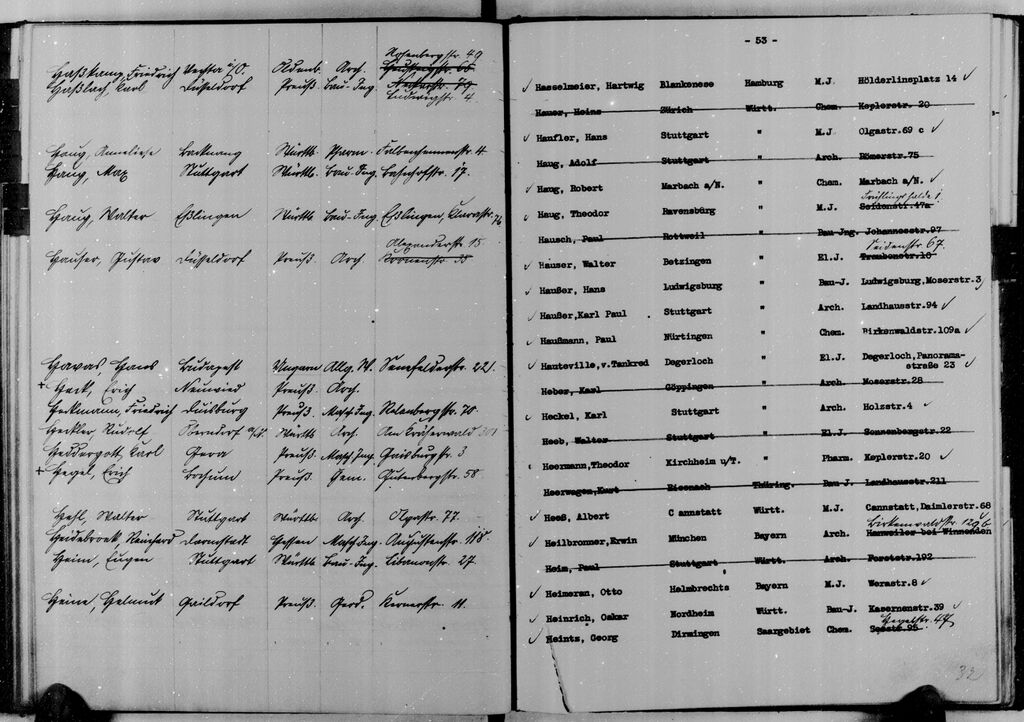 Rosenbergstr. 49
Haßkamp, Friedrich Vechta i/O. Oldenb. Arch.
Haßlach, Karl Düsseldorf Preuß. Bau-Ing.
Ludwigstr. 4.
Haug, Anneliese Backnang Württb. Pharm. Falkenhennenstr. 4.
Haug, Max Stuttgart Württb. Bau-Ing. Bahnhofstr. 17.
Haug, Walter Eßlingen Württb. Bau-Ing. Eßlingen,
Alexanderstr. 15
Hauser, Gustav Düsseldorf Preuß. Arch. Kronenstr. 35
Havas, Hans Budapest Ungarn Allg. W. Senefelderstr. 22
+ Heck, Erich Neuwied Preuß. Arch.
Heckmann, Friedrich Duisburg Preuß. Masch.Ing. Relenbergstr. 70.
Heckler, Rudolf Württb. Arch. Am Kräherwald 301
Heddergott, Karl Gera Preuß. Masch.Ing. Gaisburgstr. 3
+ Hegel, Erich Bochum Preuß. Gem. Gutenbergstr. 58.
Hehl, Walter Stuttgart Württb. Arch. Olgastr. 77.
Heidebroek, Reinhard Darmstadt Hessen Masch.Ing. Augustenstr.
Heim, Eugen Stuttgart Württb. Bau-Ing. Libanonstr. 27.
Heine, Helmut Gaildorf Preuß. 11.
- 53 -
✓ Hasselmeier, Hartwig Blankenese Hamburg M.J. Hölderlinsplatz 14 ✓
Hauer, Heinz Zürich Württ. Chem. Keplerstr. 20
✓ Haufler, Hans Stuttgart " M.J. Olgastr.69 c ✓
Haug, Adolf Stuttgart " Arch. Römerstr.75
✓ Haug, Robert Marbach a/N. " Chem. Marbach a/N. ✓
Frühlingshalde 1.
✓ Haug, Theodor Ravensburg " M.J. Seidenstr.47a
Hausch, Paul Rottweil " Bau-Jng. Johannesstr.97
Seidenstr. 67.
✓ Hauser, Walter Betzingen " El.J. Traubenstr.10
✓ Haußer, Hans Ludwigsburg " Bau-J. Ludwigsburg, Moserstr.3
✓ Haußer,Karl Paul Stuttgart " Arch. Landhausstr.94 ✓
✓ Haußmann, Paul Nürtingen " Chem. Birkenwaldstr.109a ✓
✓ Hauteville,v.Tankred Degerloch " El.J. Degerloch,Panorama-
straße 23 ✓
Heber, Karl Göppingen " Arch. Moserstr.28
✓ Heckel, Karl Stuttgart " Arch. Holzstr.4 ✓
Heeb, Walter Stuttgart " El.J. Sonnenbergstr.22
✓ Heermann,Theodor Kirchheim u/T. " Pharm. Keplerstr.20 ✓
Heerwagen,Kurt Thüring. Bau-J. Landhausstr.211
✓ Heeß, Albert Cannstatt Württ. M.J. Cannstatt,Daimlerstr.68
Birkenwaldstr.
✓ Heilbronner,Erwin München Bayern Arch. Hanweiler bei Winnenden
Heim, Paul Stuttgart Württ. Arch. Forststr.192
✓ Heimeran, Otto Helmbrechts Bayern M.J. Werastr.8 ✓
✓ Heinrich, Oskar Nordheim Württ. Bau-J. Kasernenstr.39 ✓
Hegelstr. 47
✓ Heintz, Georg Dirmingen Saargebiet Chem. Seestr.95
32